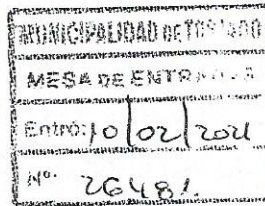 MUNICIPALIDAD DE TOSTADO
MESA DE ENTRADAS
Entró: 10/02/2021
Nº. 26481.